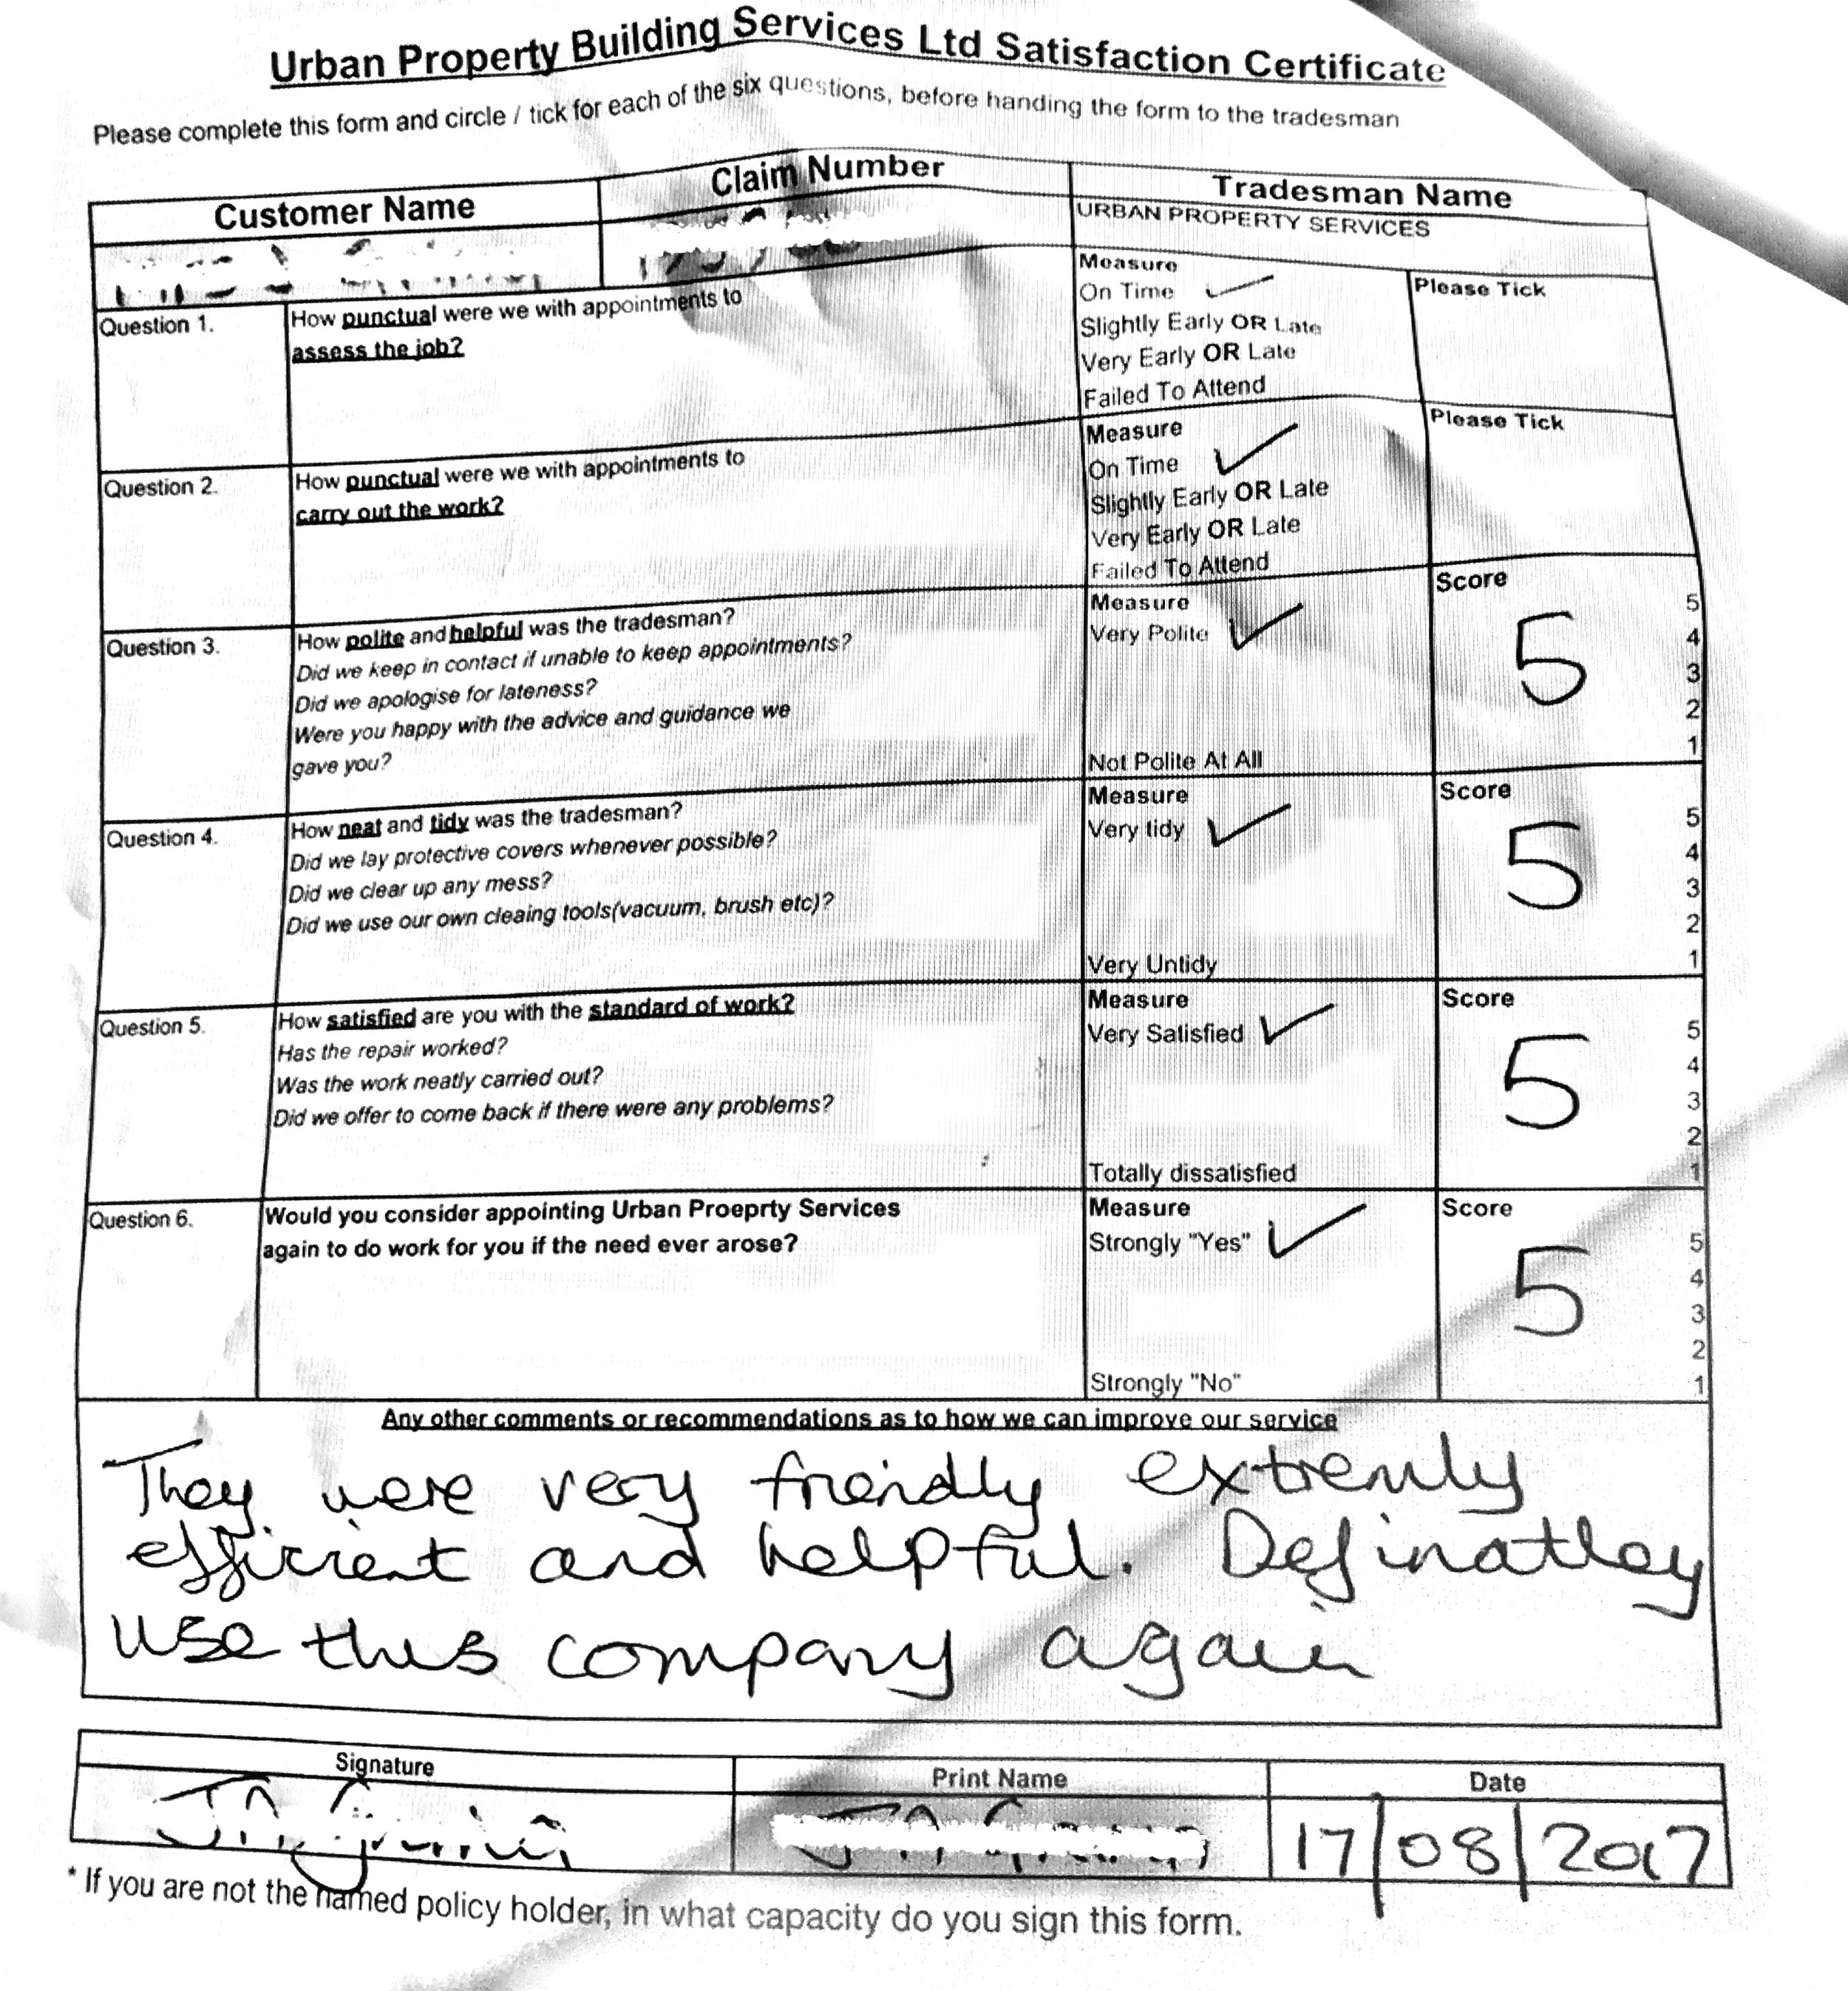 Urban Property Building Services Ltd Satisfaction Certificate
Please complete this form and circle / tick for each of the six questions, before handing the form to the tradesman
Customer Name
Claim Number
Tradesman Name
URBAN PROPERTY SERVICES
Question 1.
How punctual were we with appointments to
assess the job?
Measure
On Time ✓
Slightly Early OR Late
Very Early OR Late
Failed To Attend
Please Tick
Question 2.
How punctual were we with appointments to
carry out the work?
Measure
On Time ✓
Slightly Early OR Late
Very Early OR Late
Failed To Attend
Please Tick
Question 3.
How polite and helpful was the tradesman?
Did we keep in contact if unable to keep appointments?
Did we apologise for lateness?
Were you happy with the advice and guidance we
gave you?
Measure
Very Polite ✓
Not Polite At All
Score
5
5
4
3
2
1
Question 4.
How neat and tidy was the tradesman?
Did we lay protective covers whenever possible?
Did we clear up any mess?
Did we use our own cleaing tools(vacuum, brush etc)?
Measure
Very tidy ✓
Very Untidy
Score
5
5
4
3
2
1
Question 5.
How satisfied are you with the standard of work?
Has the repair worked?
Was the work neatly carried out?
Did we offer to come back if there were any problems?
Measure
Very Satisfied ✓
Totally dissatisfied
Score
5
5
4
3
2
1
Question 6.
Would you consider appointing Urban Proeprty Services
again to do work for you if the need ever arose?
Measure
Strongly "Yes" ✓
Strongly "No"
Score
5
5
4
3
2
1
Any other comments or recommendations as to how we can improve our service
They were very friendly extremly
efficient and helpful. Definatley
use this company again
Signature
Print Name
Date
17/08/2017
* If you are not the named policy holder, in what capacity do you sign this form.